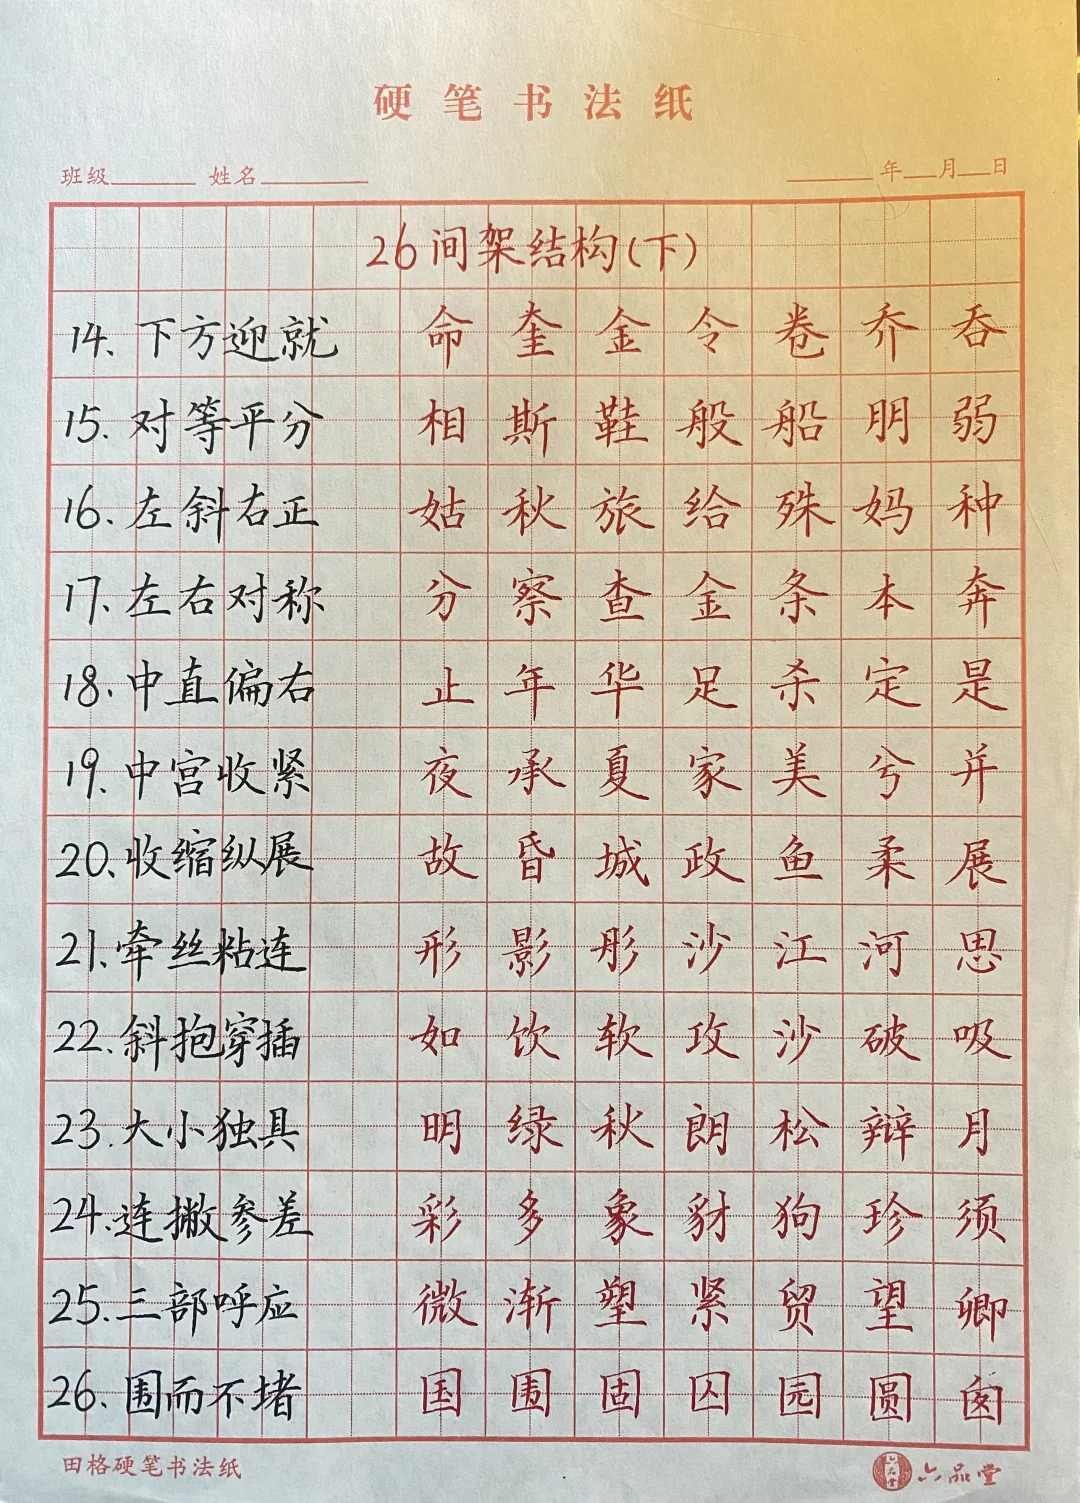 硬笔书法纸
班级 姓名 年 月 日
26间架结构(下)
14. 下方迎就 命 奎 金 令 卷 乔 吞
15. 对等平分 相 斯 鞋 般 船 朋 弱
16. 左斜右正 姑 秋 旅 给 殊 妈 种
17. 左右对称 分 察 查 金 条 本 奔
18. 中直偏右 止 年 华 足 杀 定 是
19. 中宫收紧 夜 承 夏 家 美 兮 并
20. 收缩纵展 故 昏 城 政 鱼 柔 展
21. 牵丝粘连 形 影 彤 沙 江 河 思
22. 斜抱穿插 如 饮 软 攻 沙 破 吸
23. 大小独具 明 绿 秋 朗 松 辩 月
24. 连撇参差 彩 多 象 豺 狗 珍 须
25. 三部呼应 微 渐 塑 紧 贸 望 卿
26. 围而不堵 国 围 固 囚 园 圆
田格硬笔书法纸 六品堂 六品堂